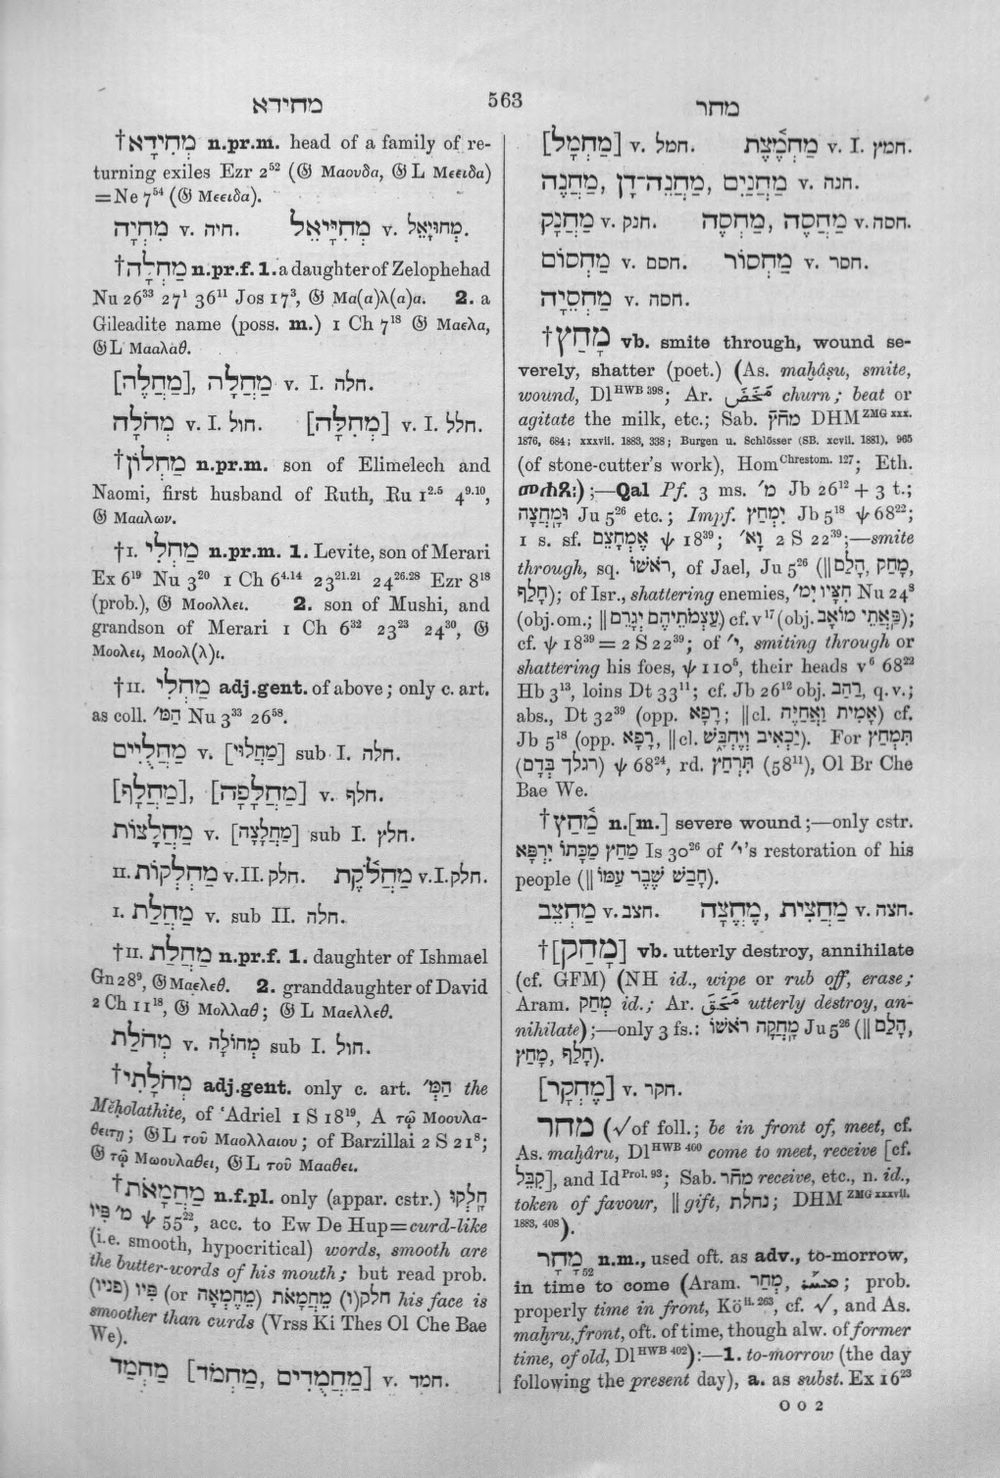 מחידא
563
מחר
†מְחִידָא n.pr.m. head of a family of re-
turning exiles Ezr 2⁵² (𝔊 Μαουδα, 𝔊 L Μεειδα)
=Ne 7⁵⁴ (𝔊 Μεειδα).
מִחְיָה v. חיה. מְחִיָּיאֵל v. מְחוּיָאֵל.
†מַחְלָה n.pr.f. 1. a daughter of Zelophehad
Nu 26³³ 27¹ 36¹¹ Jos 17³, 𝔊 Μα(α)λ(α)α. 2. a
Gileadite name (poss. m.) 1 Ch 7¹⁸ 𝔊 Μαελα,
𝔊 L Μααλαθ.
[מַחֲלֶה], מַחֲלָה v. I. חלה.
מְחֹלָה v. I. חול. [מְחִלָּה] v. I. חלל.
†מַחְלוֹן n.pr.m. son of Elimelech and
Naomi, first husband of Ruth, Ru 1²·⁵ 4⁹·¹⁰,
𝔊 Μααλων.
†I. מַחְלִי n.pr.m. 1. Levite, son of Merari
Ex 6¹⁹ Nu 3²⁰ 1 Ch 6⁴·¹⁴ 23²¹·²¹ 24²⁶·²⁸ Ezr 8¹⁸
(prob.), 𝔊 Μοολλει. 2. son of Mushi, and
grandson of Merari 1 Ch 6³² 23²³ 24³⁰, 𝔊
Μοολει, Μοολ(λ)ι.
†II. מַחְלִי adj.gent. of above; only c. art.
as coll. הַמּ׳ Nu 3³³ 26⁵⁸.
מַחֲלֻיִים v. [מַחֲלוּי] sub I. חלה.
[מַחֲלָף], [מַחְלָפָה] v. חלף.
מַחֲלָצוֹת v. [מַחֲלָצָה] sub I. חלץ.
II. מַחְלְקוֹת v. II. חלק. מַחֲלֹ֫קֶת v. I. חלק.
I. מַחֲלַת v. sub II. חלה.
†II. מַחֲלַת n.pr.f. 1. daughter of Ishmael
Gn 28⁹, 𝔊 Μαελεθ. 2. granddaughter of David
2 Ch 11¹⁸, 𝔊 Μολλαθ; 𝔊 L Μαελλεθ.
מְחֹלַת v. מְחוֹלָה sub I. חול.
†מְחֹלָתִי adj.gent. only c. art. הַמְּ׳ the
Mĕḥolathite, of ʻAdriel 1 S 18¹⁹, A τῷ Μοουλα-
θειτῃ; 𝔊 L τοῦ Μαολλαιου; of Barzillai 2 S 21⁸;
𝔊 τῷ Μωουλαθει, 𝔊 L τοῦ Μααθει.
†מַחְמָאֹת n.f.pl. only (appar. cstr.) חָֽלְקוּ
מַ׳ פִּיו ψ 55²², acc. to Ew De Hup=curd-like
(i.e. smooth, hypocritical) words, smooth are
the butter-words of his mouth; but read prob.
חלק(ו) מֵחֶמְאָה (or מֵחֶמְאֹת) פיו (פניו) his face is
smoother than curds (Vrss Ki Thes Ol Che Bae
We).
מַחְמַד [מַחְמֹד, מַחֲמֻדִּים] v. חמד.
[מַחְמָל] v. חמל. מַחְמֶ֫צֶת v. I. חמץ.
מַחֲנֶה, מַחֲנֵה־דָן, מַחֲנַיִם v. חנה.
מַחֲנָק v. חנק. מַחְסֶה, מַחֲסֶה v. חסה.
מַחְסוֹם v. חסם. מַחְסוֹר v. חסר.
מַחְסֵיָה v. חסה.
†מָחַץ vb. smite through, wound se-
verely, shatter (poet.) (As. maḫâṣu, smite,
wound, Dl HWB 398; Ar. مَخَضَ churn; beat or
agitate the milk, etc.; Sab. מחֿץֿ DHM ZMG xxx.
1876, 684; xxxvii. 1883, 338; Burgen u. Schlösser (SB. xcvii. 1881), 965
(of stone-cutter's work), Hom Chrestom. 127; Eth.
መሐፀ:);—Qal Pf. 3 ms. מ׳ Jb 26¹² + 3 t.;
וּמָחֲצָה Ju 5²⁶ etc.; Impf. יִמְחַץ Jb 5¹⁸ ψ 68²²;
1 s. sf. אֶמְחָצֵם ψ 18³⁹; וָא׳ 2 S 22³⁹;—smite
through, sq. רֹאשׁוֹ, of Jael, Ju 5²⁶ (‖ הָלַם, מָחַק,
חָלַף); of Isr., shattering enemies, חִצָּיו יִמ׳ Nu 24⁸
(obj. om.; ‖ עַצְמֹתֵיהֶם יְגָרֵם) cf. v¹⁷ (obj. פַּאֲתֵי מוֹאָב);
cf. ψ 18³⁹ = 2 S 22³⁹; of י׳, smiting through or
shattering his foes, ψ 110⁵, their heads v⁶ 68²²
Hb 3¹³, loins Dt 33¹¹; cf. Jb 26¹² obj. רַהַב, q.v.;
abs., Dt 32³⁹ (opp. רָפָא; ‖ cl. אָמִית וַאֲחַיֶּה) cf.
Jb 5¹⁸ (opp. רָפָא, ‖ cl. יַכְאִיב וְיֶחְבָּשׁ). For תִּמְחַץ
(רגלך בְּדָם) ψ 68²⁴, rd. תִּרְחַץ (58¹¹), Ol Br Che
Bae We.
†מַ֫חַץ n.[m.] severe wound;—only cstr.
מַחַץ מַכָּתוֹ יִרְפָּא Is 30²⁶ of י׳'s restoration of his
people (‖ חָבַשׁ שֶׁבֶר עַמּוֹ).
מַחְצֵב v. חצב. מֶחֱצָה, מַחֲצִית v. חצה.
†[מָחַק] vb. utterly destroy, annihilate
(cf. GFM) (NH id., wipe or rub off, erase;
Aram. מְחַק id.; Ar. مَحَقَ utterly destroy, an-
nihilate);—only 3 fs.: מָחֲקָה רֹאשׁוֹ Ju 5²⁶ (‖ הָלַם,
חָלַף, מָחַץ).
[מֶחְקָר] v. חקר.
מחר (√ of foll.; be in front of, meet, cf.
As. maḫâru, Dl HWB 400 come to meet, receive [cf.
קִבֵּל], and Id Prol. 93; Sab. מחֿר receive, etc., n. id.,
token of favour, ‖ gift, נחלת; DHM ZMG xxxvii.
1883, 408).
מָחָר n.m., used oft. as adv., to-morrow,
in time to come (Aram. מְחַר, ܡܚܪ; prob.
properly time in front, Kö ii. 263, cf. √, and As.
maḫru, front, oft. of time, though alw. of former
time, of old, Dl HWB 402):—1. to-morrow (the day
following the present day), a. as subst. Ex 16²³
O O 2